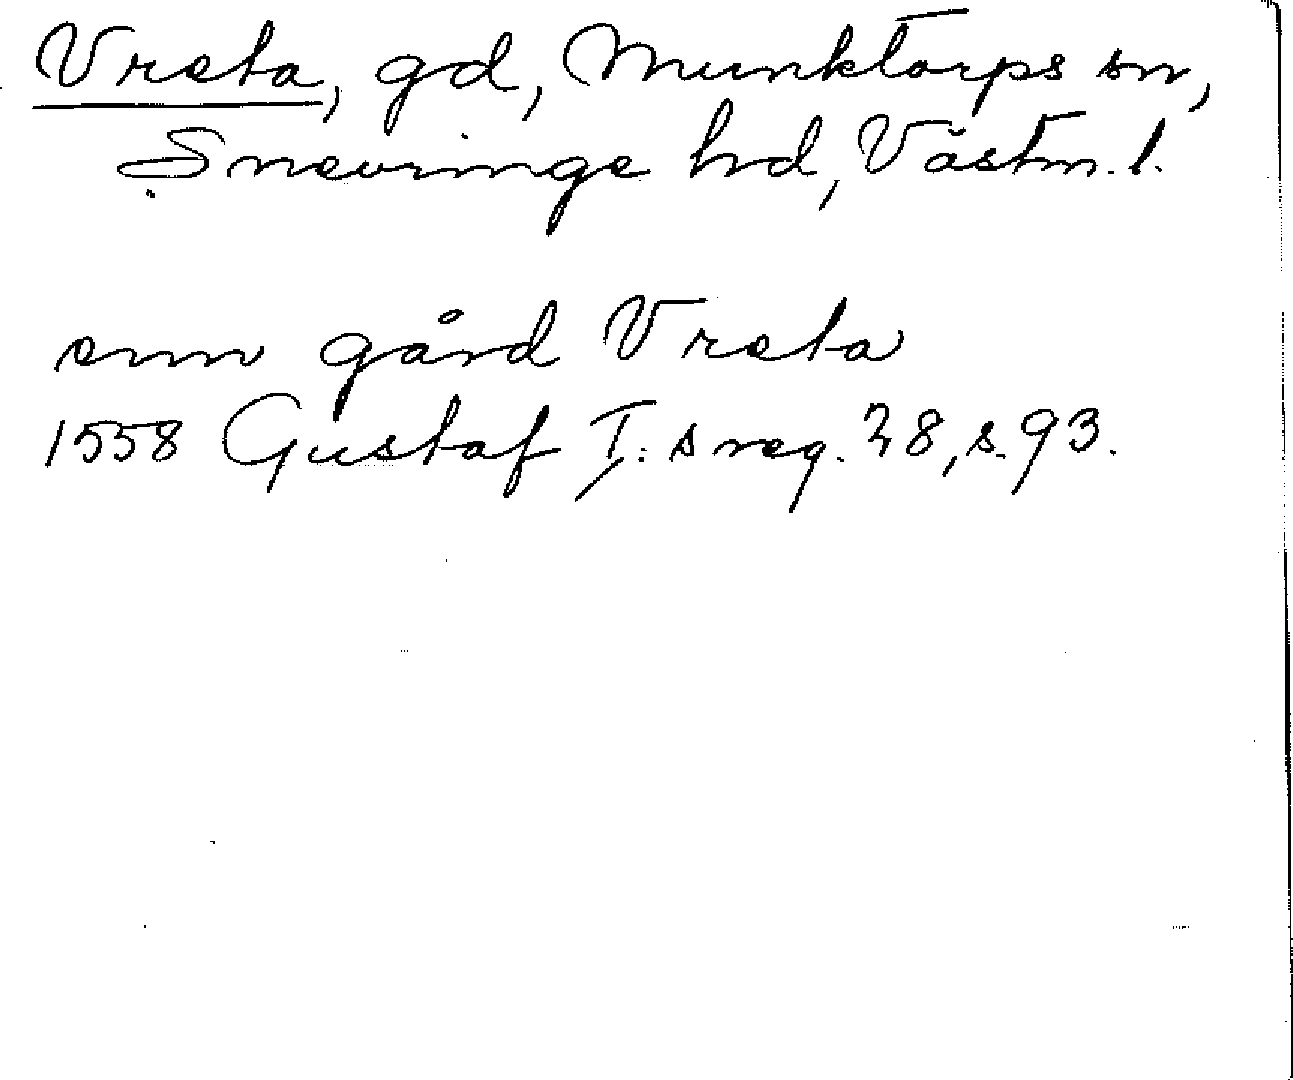 Vreta, gd, Munktorps sn,
Snevringe hd, Västm. l.
enn gård Vreta
1558 Gustaf I:s reg. 28, s. 93.